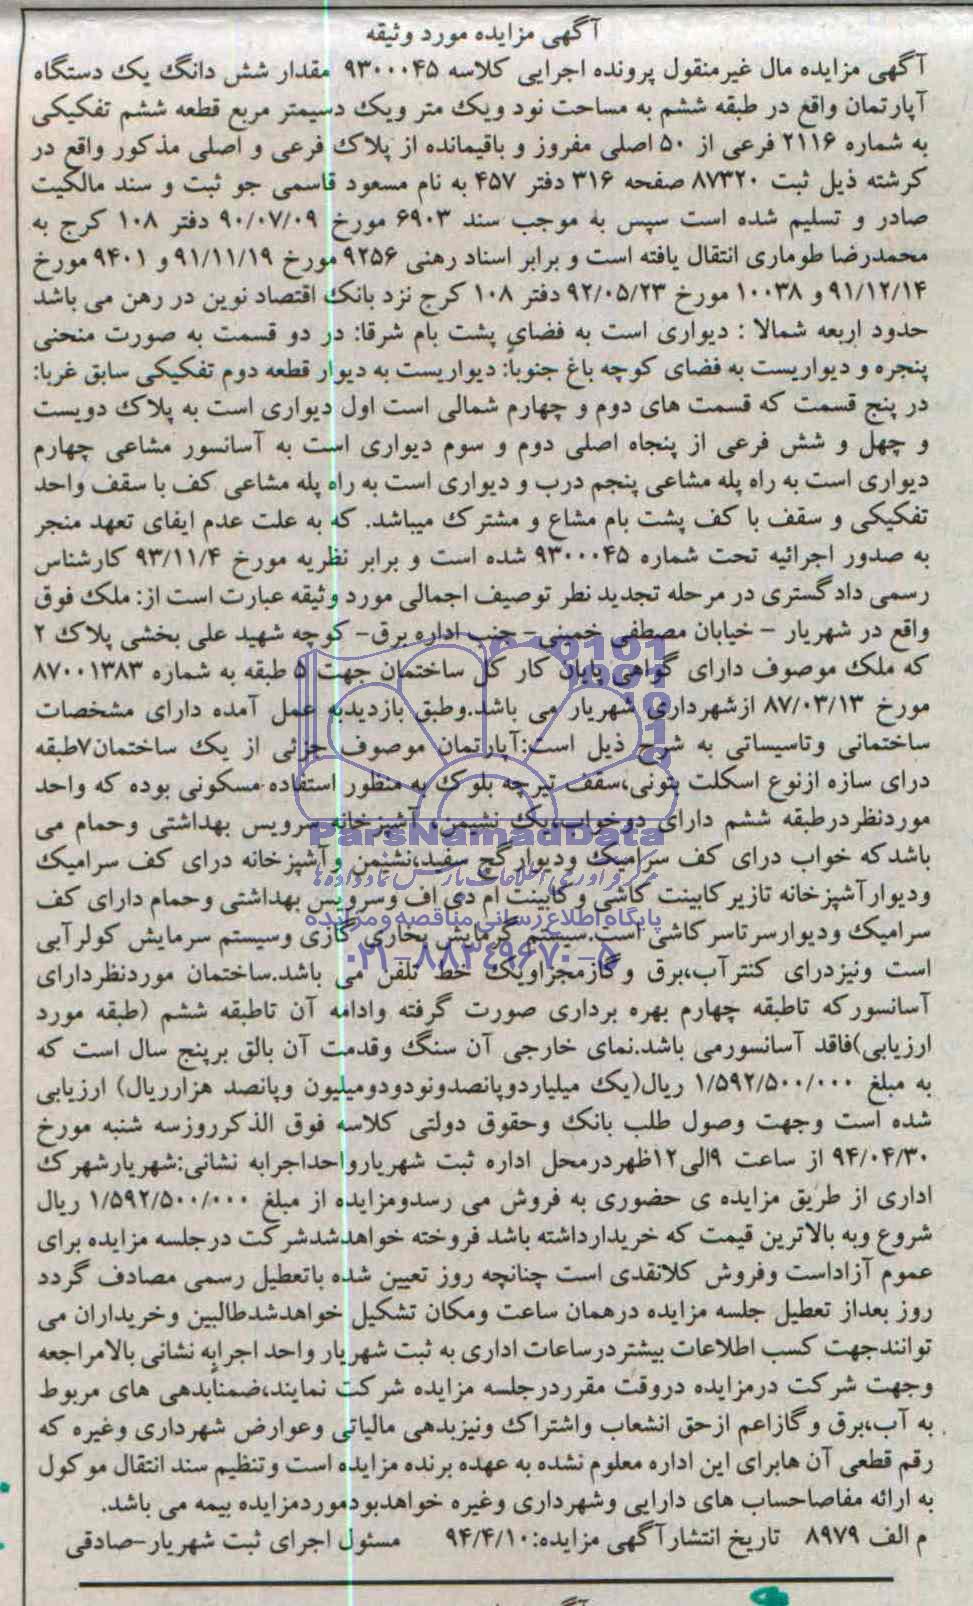 آگهی مزایده مورد وثیقه
آگهی مزایده مال غیرمنقول پرونده اجرایی کلاسه ۹۳۰۰۰۴۵ مقدار شش دانگ یک دستگاه
آپارتمان واقع در طبقه ششم به مساحت نود ویک متر ویک دسیمتر مربع قطعه ششم تفکیکی
به شماره ۲۱۱۶ فرعی از ۵۰ اصلی مفروز و باقیمانده از پلاک فرعی و اصلی مذکور واقع در
کرشته ذیل ثبت ۸۷۳۲۰ صفحه ۳۱۶ دفتر ۴۵۷ به نام مسعود قاسمی جو ثبت و سند مالکیت
صادر و تسلیم شده است سپس به موجب سند ۶۹۰۳ مورخ ۹۰/۰۷/۰۹ دفتر ۱۰۸ کرج به
محمدرضا طوماری انتقال یافته است و برابر اسناد رهنی ۹۲۵۶ مورخ ۹۱/۱۱/۱۹ و ۹۴۰۱ مورخ
۹۱/۱۲/۱۴ و ۱۰۰۳۸ مورخ ۹۲/۰۵/۲۳ دفتر ۱۰۸ کرج نزد بانک اقتصاد نوین در رهن می باشد
حدود اربعه شمالا : دیواری است به فضای پشت بام شرقا: در دو قسمت به صورت منحنی
پنجره و دیواریست به فضای کوچه باغ جنوبا: دیواریست به دیوار قطعه دوم تفکیکی سابق غربا:
در پنج قسمت که قسمت های دوم و چهارم شمالی است اول دیواری است به پلاک دویست
و چهل و شش فرعی از پنجاه اصلی دوم و سوم دیواری است به آسانسور مشاعی چهارم
دیواری است به راه پله مشاعی پنجم درب و دیواری است به راه پله مشاعی کف با سقف واحد
تفکیکی و سقف با کف پشت بام مشاع و مشترک میباشد. که به علت عدم ایفای تعهد منجر
به صدور اجرائیه تحت شماره ۹۳۰۰۰۴۵ شده است و برابر نظریه مورخ ۹۳/۱۱/۴ کارشناس
رسمی دادگستری در مرحله تجدید نظر توصیف اجمالی مورد وثیقه عبارت است از: ملک فوق
واقع در شهریار – خیابان مصطفی خمینی – جنب اداره برق- کوچه شهید علی بخشی پلاک ۲
که ملک موصوف دارای گواهی پایان کار کل ساختمان جهت ۵ طبقه به شماره ۸۷۰۰۱۳۸۳
مورخ ۸۷/۰۳/۱۳ ازشهرداری شهریار می باشد.وطبق بازدیدبه عمل آمده دارای مشخصات
ساختمانی وتاسیساتی به شرح ذیل است:آپارتمان موصوف جزئی از یک ساختمان۷طبقه
درای سازه ازنوع اسکلت بتونی،سقف تیرچه بلوک به منظور استفاده مسکونی بوده که واحد
موردنظردرطبقه ششم دارای دوخواب،یک نشیمن، آشپزخانه سرویس بهداشتی وحمام می
باشدکه خواب درای کف سرامیک ودیوارگچ سفید،نشیمن وآشپزخانه درای کف سرامیک
ودیوارآشپزخانه تازیرکابینت کاشی وکابینت ام دی اف وسرویس بهداشتی وحمام دارای کف
سرامیک ودیوارسرتاسرکاشی است.سیستم گرمایش بخاری گازی وسیستم سرمایش کولرآبی
است ونیزدرای کنترآب،برق وگازمجزاویک خط تلفن می باشد.ساختمان موردنظردارای
آسانسورکه تاطبقه چهارم بهره برداری صورت گرفته وادامه آن تاطبقه ششم (طبقه مورد
ارزیابی)فاقد آسانسورمی باشد.نمای خارجی آن سنگ وقدمت آن بالق برپنج سال است که
به مبلغ ۱/۵۹۲/۵۰۰/۰۰۰ ریال(یک میلیاردوپانصدونودودومیلیون وپانصد هزارریال) ارزیابی
شده است وجهت وصول طلب بانک وحقوق دولتی کلاسه فوق الذکرروزسه شنبه مورخ
۹۴/۰۴/۳۰ از ساعت ۹الی۱۲ظهردرمحل اداره ثبت شهریارواحداجرابه نشانی:شهریارشهرک
اداری از طریق مزایده ی حضوری به فروش می رسدومزایده از مبلغ ۱/۵۹۲/۵۰۰/۰۰۰ ریال
شروع وبه بالاترین قیمت که خریدارداشته باشد فروخته خواهدشدشرکت درجلسه مزایده برای
عموم آزاداست وفروش کلانقدی است چنانچه روز تعیین شده باتعطیل رسمی مصادف گردد
روز بعداز تعطیل جلسه مزایده درهمان ساعت ومکان تشکیل خواهدشدطالبین وخریداران می
توانندجهت کسب اطلاعات بیشتردرساعات اداری به ثبت شهریار واحد اجرابه نشانی بالامراجعه
وجهت شرکت درمزایده دروقت مقرردرجلسه مزایده شرکت نمایند،ضمنابدهی های مربوط
به آب،برق وگازاعم ازحق انشعاب واشتراک ونیزبدهی مالیاتی وعوارض شهرداری وغیره که
رقم قطعی آن هابرای این اداره معلوم نشده به عهده برنده مزایده است وتنظیم سند انتقال موکول
به ارائه مفاصاحساب های دارایی وشهرداری وغیره خواهدبودموردمزایده بیمه می باشد.
م الف ۸۹۷۹ تاریخ انتشارآگهی مزایده:۹۴/۴/۱۰ مسئول اجرای ثبت شهریار-صادقی
ParsNamadData
مرکز فرآوری اطلاعات پارس نماد داده ها
پایگاه اطلاع رسانی مناقصه و مزایده
۰۲۱-۸۸۳۴۹۶۷۰-۵